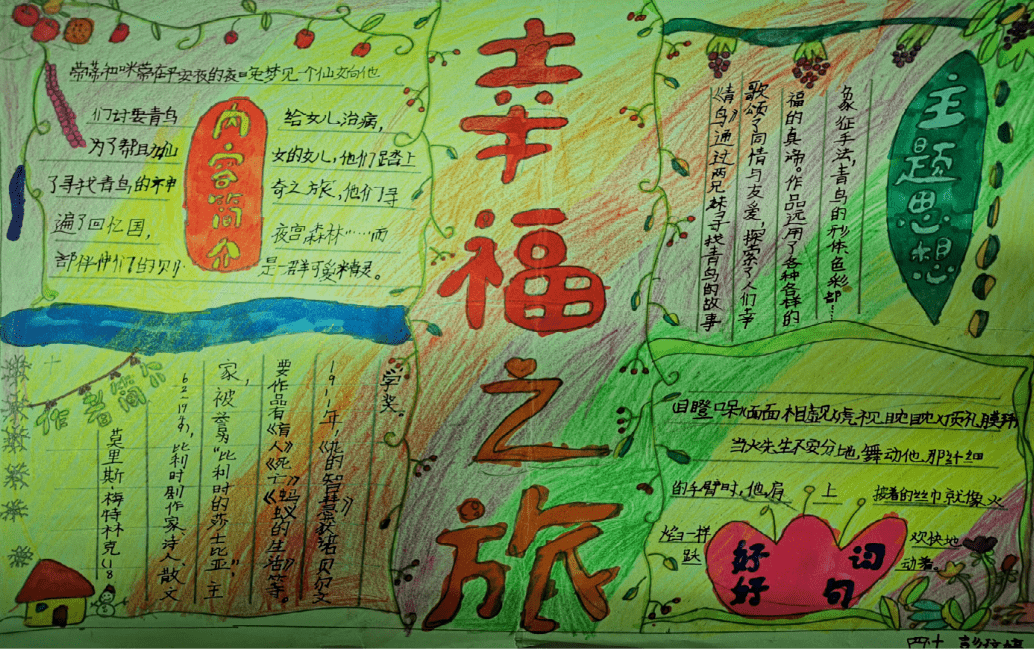 幸福之旅
内容简介
蒂蒂和咪棠在平安夜的夜里梦见一个仙女向他
们讨要青鸟 给女儿治病,
为了帮助仙 女的女儿,他们踏上
了寻找青鸟的神 奇之旅,他们寻
遍了回忆国, 夜宫森林……而
部伴他们的则 是一群可爱精灵。
主题思想
象征手法,青鸟的形体、色彩都…
福的真谛。作品运用了各种各样的
歌颂了同情与友爱,探索了人们幸
《青鸟》通过两兄妹寻找青鸟的故事
作者简介
莫里斯·梅特林克(18
62-1949),比利时剧作家、诗人、散文
家,被誉为"比利时的莎士比亚",主
要作品有《盲人》《死亡》《蚂蚁的生活》等。
1911年,《花的智慧》获诺贝尔文
学奖。
目瞪口呆 面面相觑 虎视眈眈 顶礼膜拜
当火先生不安分地,舞动他那纤细
的手臂时,他肩上 披着的丝巾就像火
焰一样 欢快地
跃 动着。
好词
好句
四十